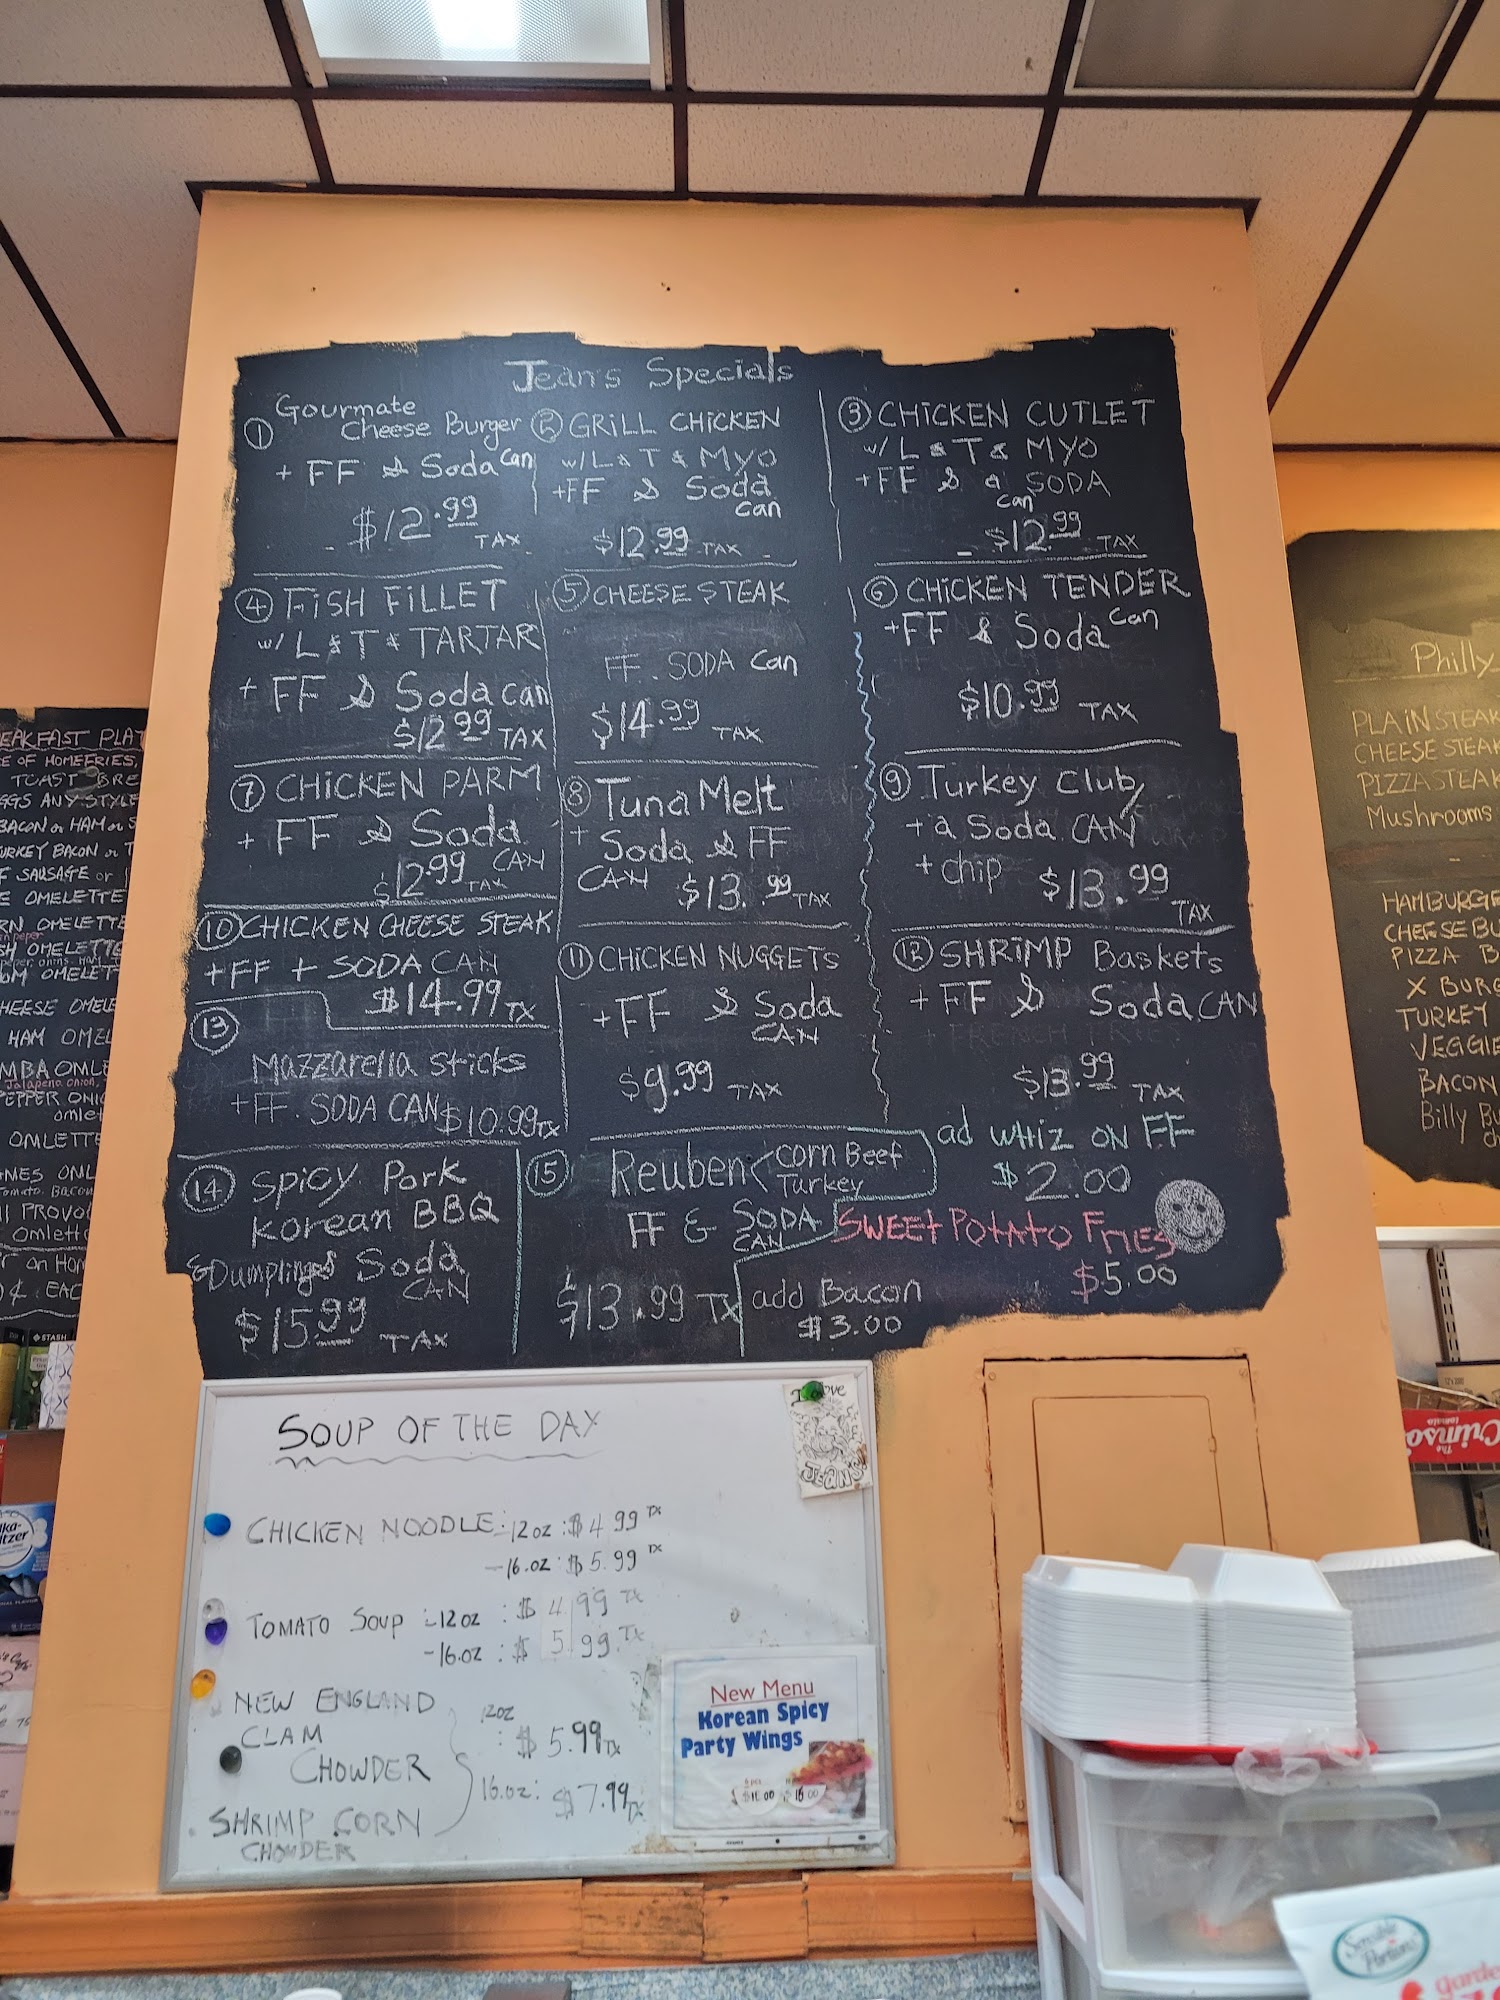 Jean's Specials
① Gourmate
Cheese Burger
+ FF & Soda Can
$12.99
TAX
② GRILL CHICKEN
w/ L & T & MYO
+FF & Soda
Can
$12.99 TAX
③ CHICKEN CUTLET
w/ L & T & MYO
+FF & a SODA
Can
$12.99 TAX
④ FISH FILLET
w/ L & T & TARTAR
+ FF & Soda can
$12.99 TAX
⑤ CHEESE STEAK
FF SODA Can
$14.99 TAX
⑥ CHICKEN TENDER
+FF & Soda Can
$10.99 TAX
⑦ CHICKEN PARM
+ FF & Soda
CAN
$12.99 TAX
⑧ Tuna Melt
+ Soda & FF
CAN $13.99 TAX
⑨ Turkey Club
+ a Soda CAN
+ chip $13.99
TAX
⑩ CHICKEN CHEESE STEAK
+FF + SODA CAN
$14.99 TX
⑪ CHICKEN NUGGETS
+FF & Soda
CAN
$9.99 TAX
⑫ SHRIMP Baskets
+ FF & Soda CAN
$13.99 TAX
⑬
Mazzarella sticks
+FF. SODA CAN $10.99 TX
ad WHIZ ON FF
$2.00
⑭ Spicy Pork
Korean BBQ
& Dumplings Soda
CAN
$15.99 TAX
⑮ Reuben < corn Beef
Turkey
FF & SODA
CAN
$13.99 TX
SWEET POTATO FRIES
$5.00
add Bacon
$3.00
SOUP OF THE DAY
CHICKEN NOODLE: 12oz : $4.99 TX
-16.oz : $5.99 TX
TOMATO SOUP :-12oz : $4.99 TX
-16.oz : $5.99 TX
NEW ENGLAND
CLAM
CHOWDER
SHRIMP CORN
CHOWDER
12oz
: $5.99 TX
16.oz: $7.99 TX
I Love
JEAN'S!
New Menu
Korean Spicy
Party Wings
EAKFAST PLAT
E OF HOMEFRIES,
TOAST BRE
GGS ANY STYLE
BACON or HAM or S
URKEY BACON or T
F SAUSAGE or
E OMELETTE
RN OMELETTE
SH OMELETTE
OM OMELET
HEESE OMELE
HAM OMEL
MBA OMLE
Jalapeno, onion,
PEPPER ONIO
omlet
OMLETTE
Tomato, Bacon
PROVO
Omlett
EAC
STASH
Philly
PLAIN STEAK
CHEESE STEAK
PIZZA STEAK
Mushrooms
HAMBURGE
CHEESE BU
PIZZA B
X BURG
TURKEY
VEGGIE
BACON
Billy Bu
ch
The
Crimso
tomato
Sensible
Portions
garde